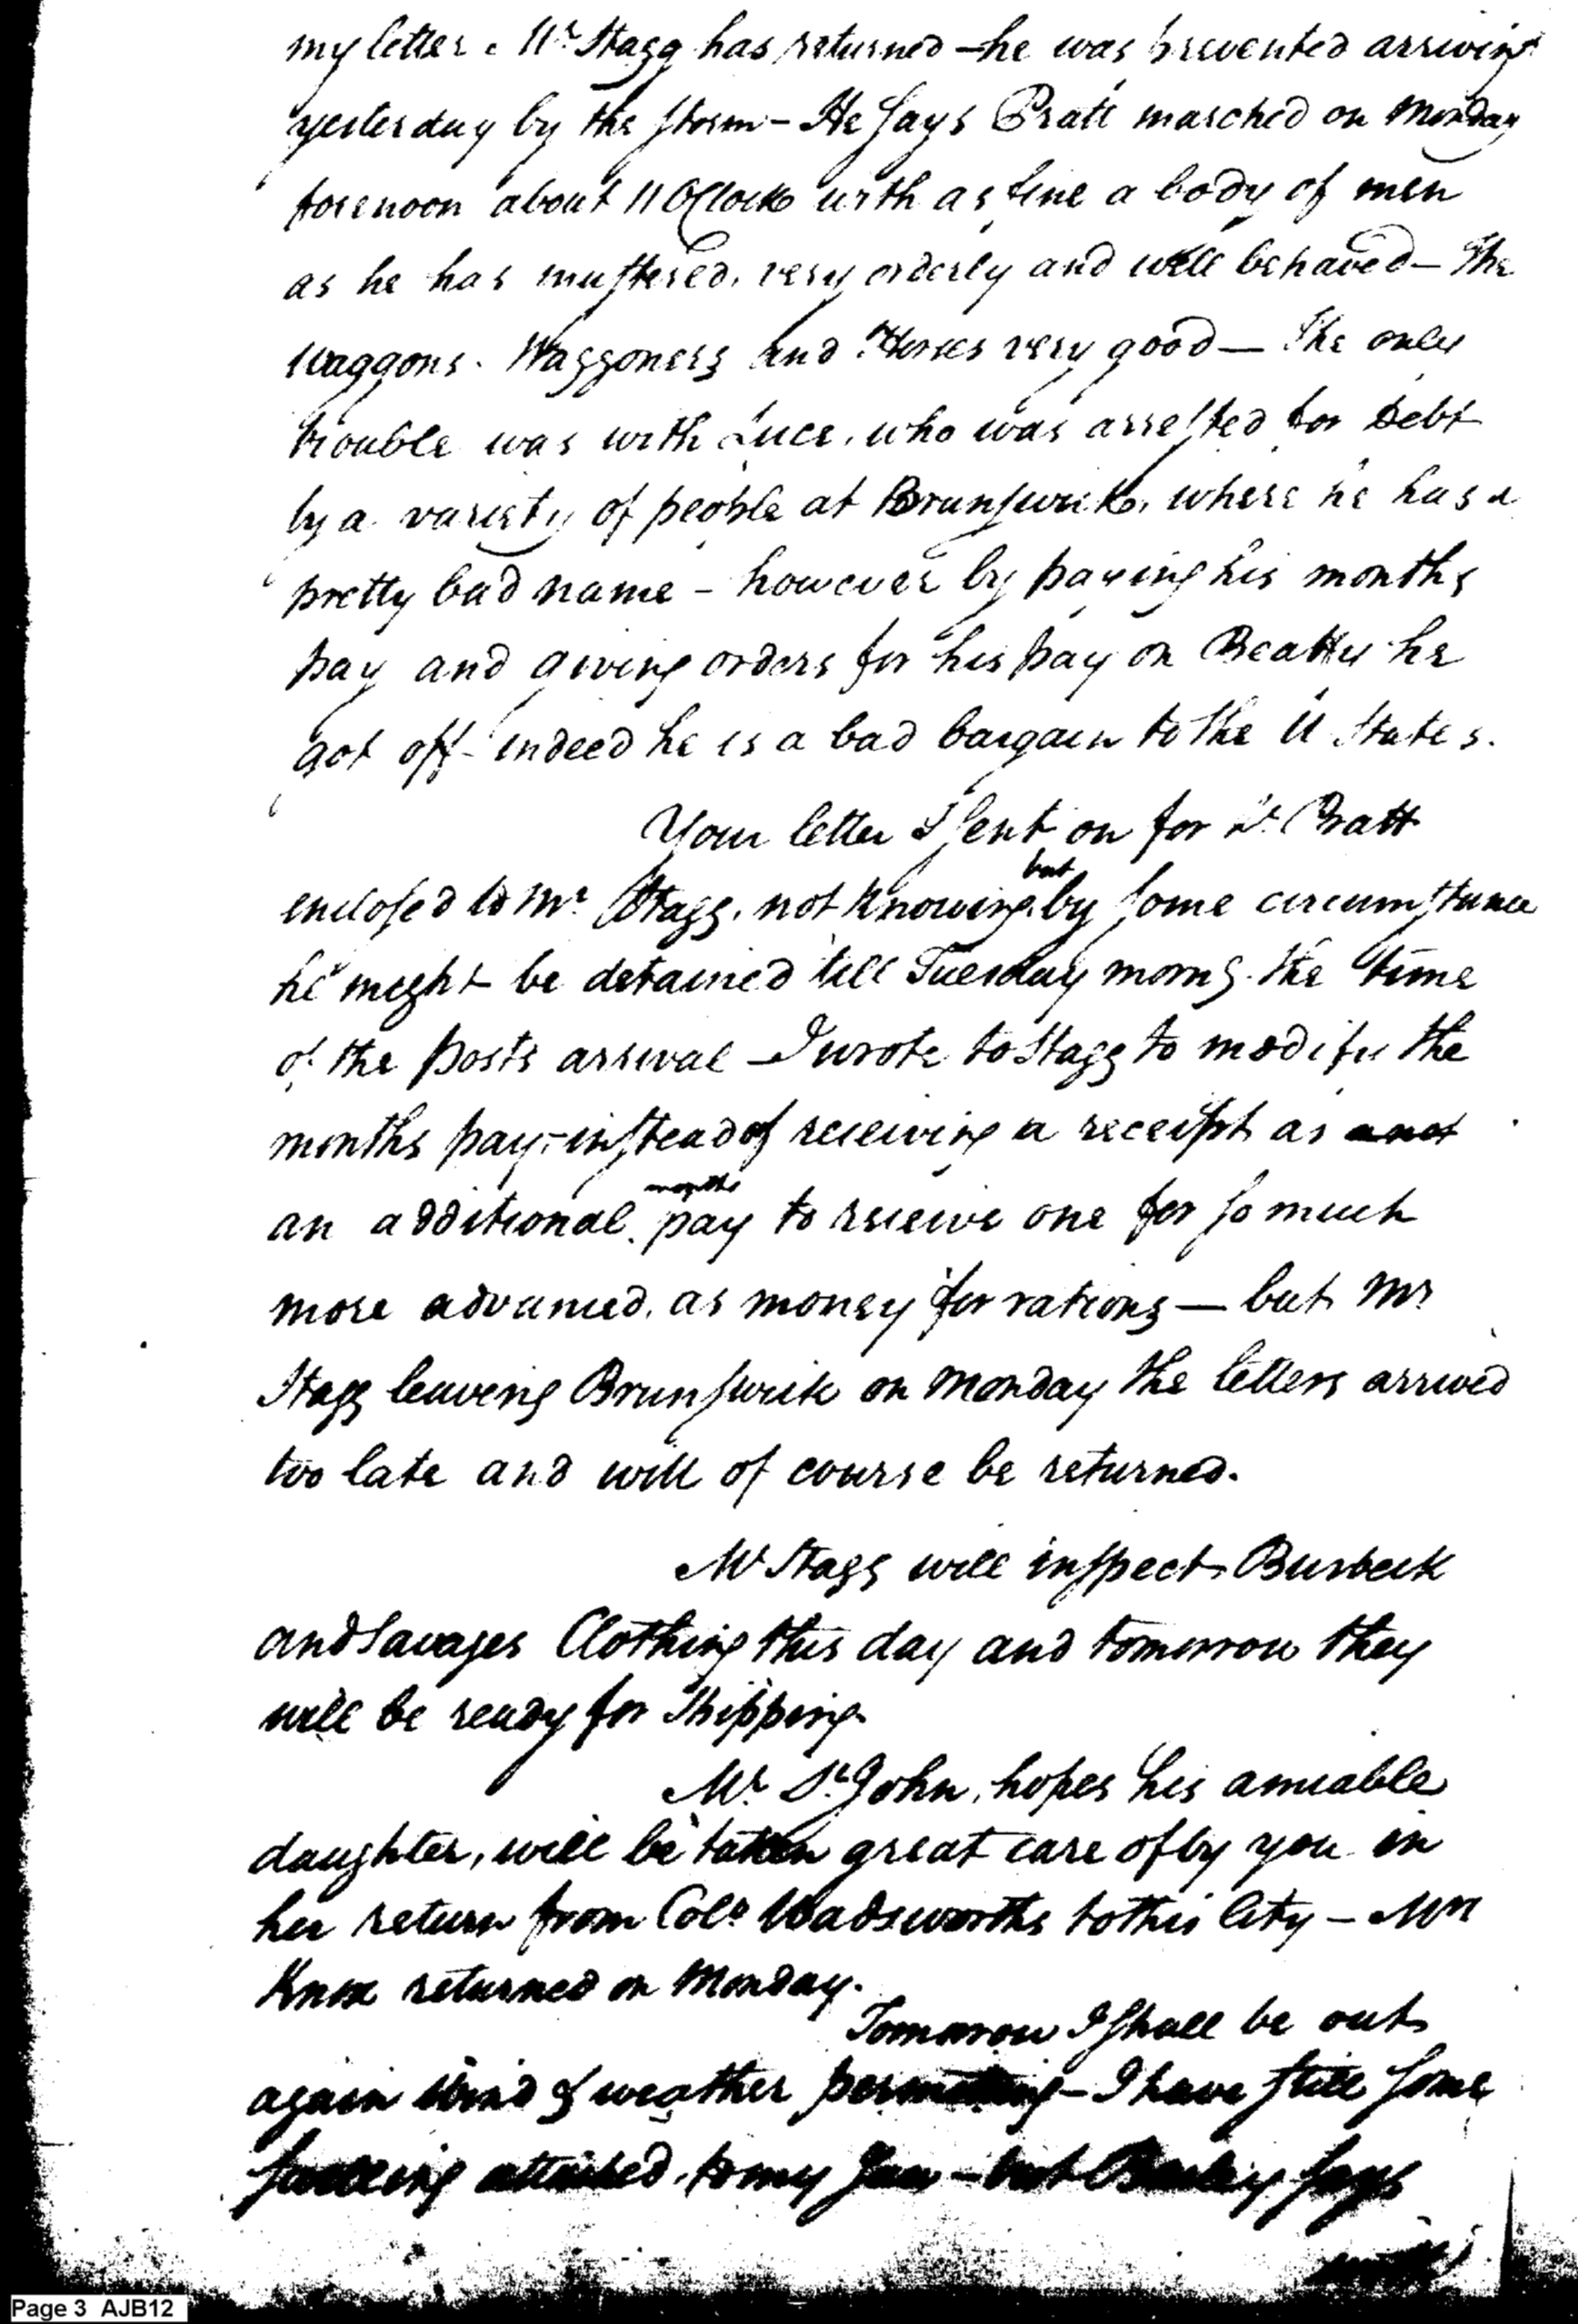 my letter. Mr Stagg has returned – he was prevented arriving
yesterday by the storm – He says Pratt marched on Monday
forenoon about 11 OClock with as fine a body of men
as he has mustered, very orderly and well behaved – The
Waggons. Waggoners and Horses very good – The only
trouble was with Luce, who was arrested for Debt
by a variety of people at Brunswick, where he has a
pretty bad name – however by paying his months
pay and giving orders for his pay on Beatty he
got off – indeed he is a bad bargain to the U States.
Your letter I sent on for Lt. Pratt
enclosed to Mr Stagg, not knowing but by some circumstance
he might be detained till Tuesday morng. the time
of the posts arrival – I wrote to Stagg to modify the
months pay, instead of receiving a receipt as
an additional months pay to receive one for so much
more advanced, as money for rations – but Mr
Stagg leaving Brunswick on Monday the letters arrived
too late and will of course be returned.
Mr Stagg will inspect Burbeck
and Savages Clothing this day and tomorrow they
will be ready for Shipping.
Mr. St. John, hopes his amiable
daughter, will be taken great care of by you in
her return from Colo Wadsworths to this City – Mrs
Knox returned on Monday.
Tomorrow I shall be out
again Wind & weather permitting – I have still some
swelling attached, to my Jaw – but says
Page 3 AJB12